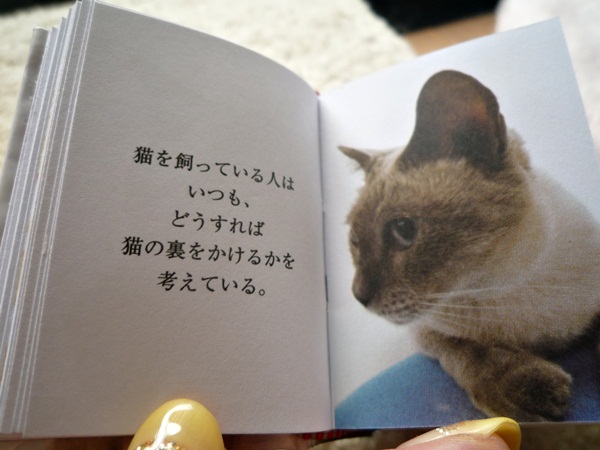 猫を飼っている人は
いつも、
どうすれば
猫の裏をかけるかを
考えている。